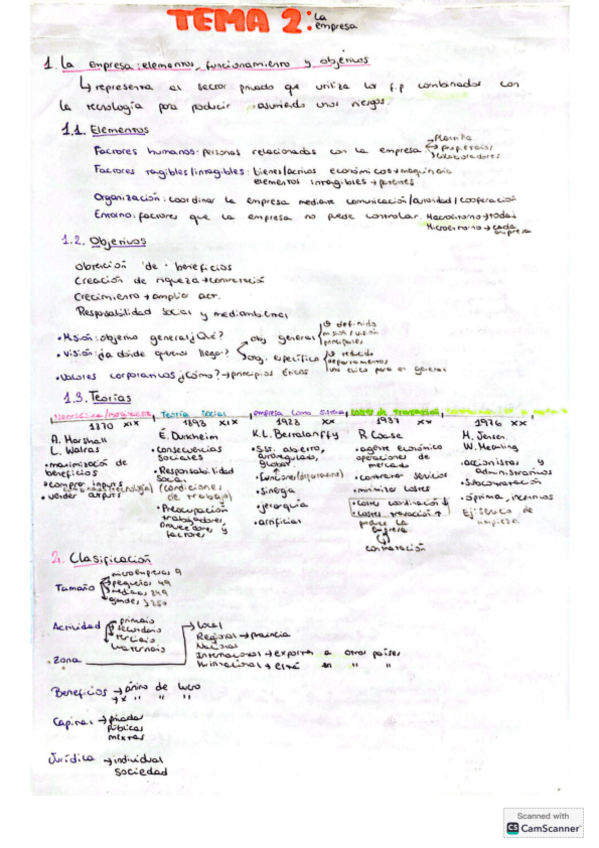 TEMA 2: La empresa
1. La empresa: elementos, funcionamiento y objetivos
↳ representa al sector privado que utiliza los f.p combinados con
la tecnología para producir asumiendo unos riesgos.
1.1. Elementos
Factores humanos: personas relacionadas con la empresa → plantilla
→ propietarios
→ colaboradores
Factores tangibles/intangibles: bienes/activos económicos → maquinaria
elementos intangibles → patentes
Organización: coordinar la empresa mediante comunicación/autoridad/cooperación
Entorno: factores que la empresa no puede controlar. Macroentorno → todas
Microentorno → cada empresa
1.2. Objetivos
Obtención de beneficios
Creación de riqueza →
Crecimiento → ampliar act.
Resposabilidad social y mediambiental
• Misión: objetivo general ¿Qué?
• Visión: ¿a dónde quiero llegar?
→ obj general
definido
misión/visión
principales
→ obj. específico
reducido
departamentos
uno clico para el general
• Valores corporativos ¿Cómo? → principios éticos
1.3. Teorías
Teoría Social
empresa como sistema
costes de transacción
1870 XIX
1893 XIX
1928 XX
1937 XX
1976 XX
A. Marshall
L. Walras
• maximización de beneficios
• comprar inputs
(tecnología)
• vender outputs
É. Durkheim
• Consecuencias sociales
• Resposabilidad social
(condiciones de trabajo)
• Preocupación trabajadores, proveedores y factores
K.L. Bertalanffy
• Sist. abierto, autoregulado, global.
• Funciones
• Sinergia
• jerarquía
• artificial
R Coase
• agente económico operaciones de mercado
• contratar servicios
• minimizar costes
• costes coordinación ↓
• costes transacción ↑
produce la empresa
contratación
M. Jensen
W. Meckling
• accionistas y administrativos
• Subcontratación
• óptima, incentivos
Ejército de limpieza
2. Clasificación
Tamaño
→ microempresas 9
→ pequeñas 49
→ medianas 249
→ grandes > 250
Actividad
→ primario
→ secundario
→ terciario
→ cuaternario
Zona
→ Local
Regional → provincia
Nacional
Internacional → exporta a otros países
Multinacional → está en " "
Beneficios → ánimo de lucro
→ x " " "
Capital → privadas
públicas
mixtas
Jurídica → individual
sociedad
Scanned with
CS CamScanner